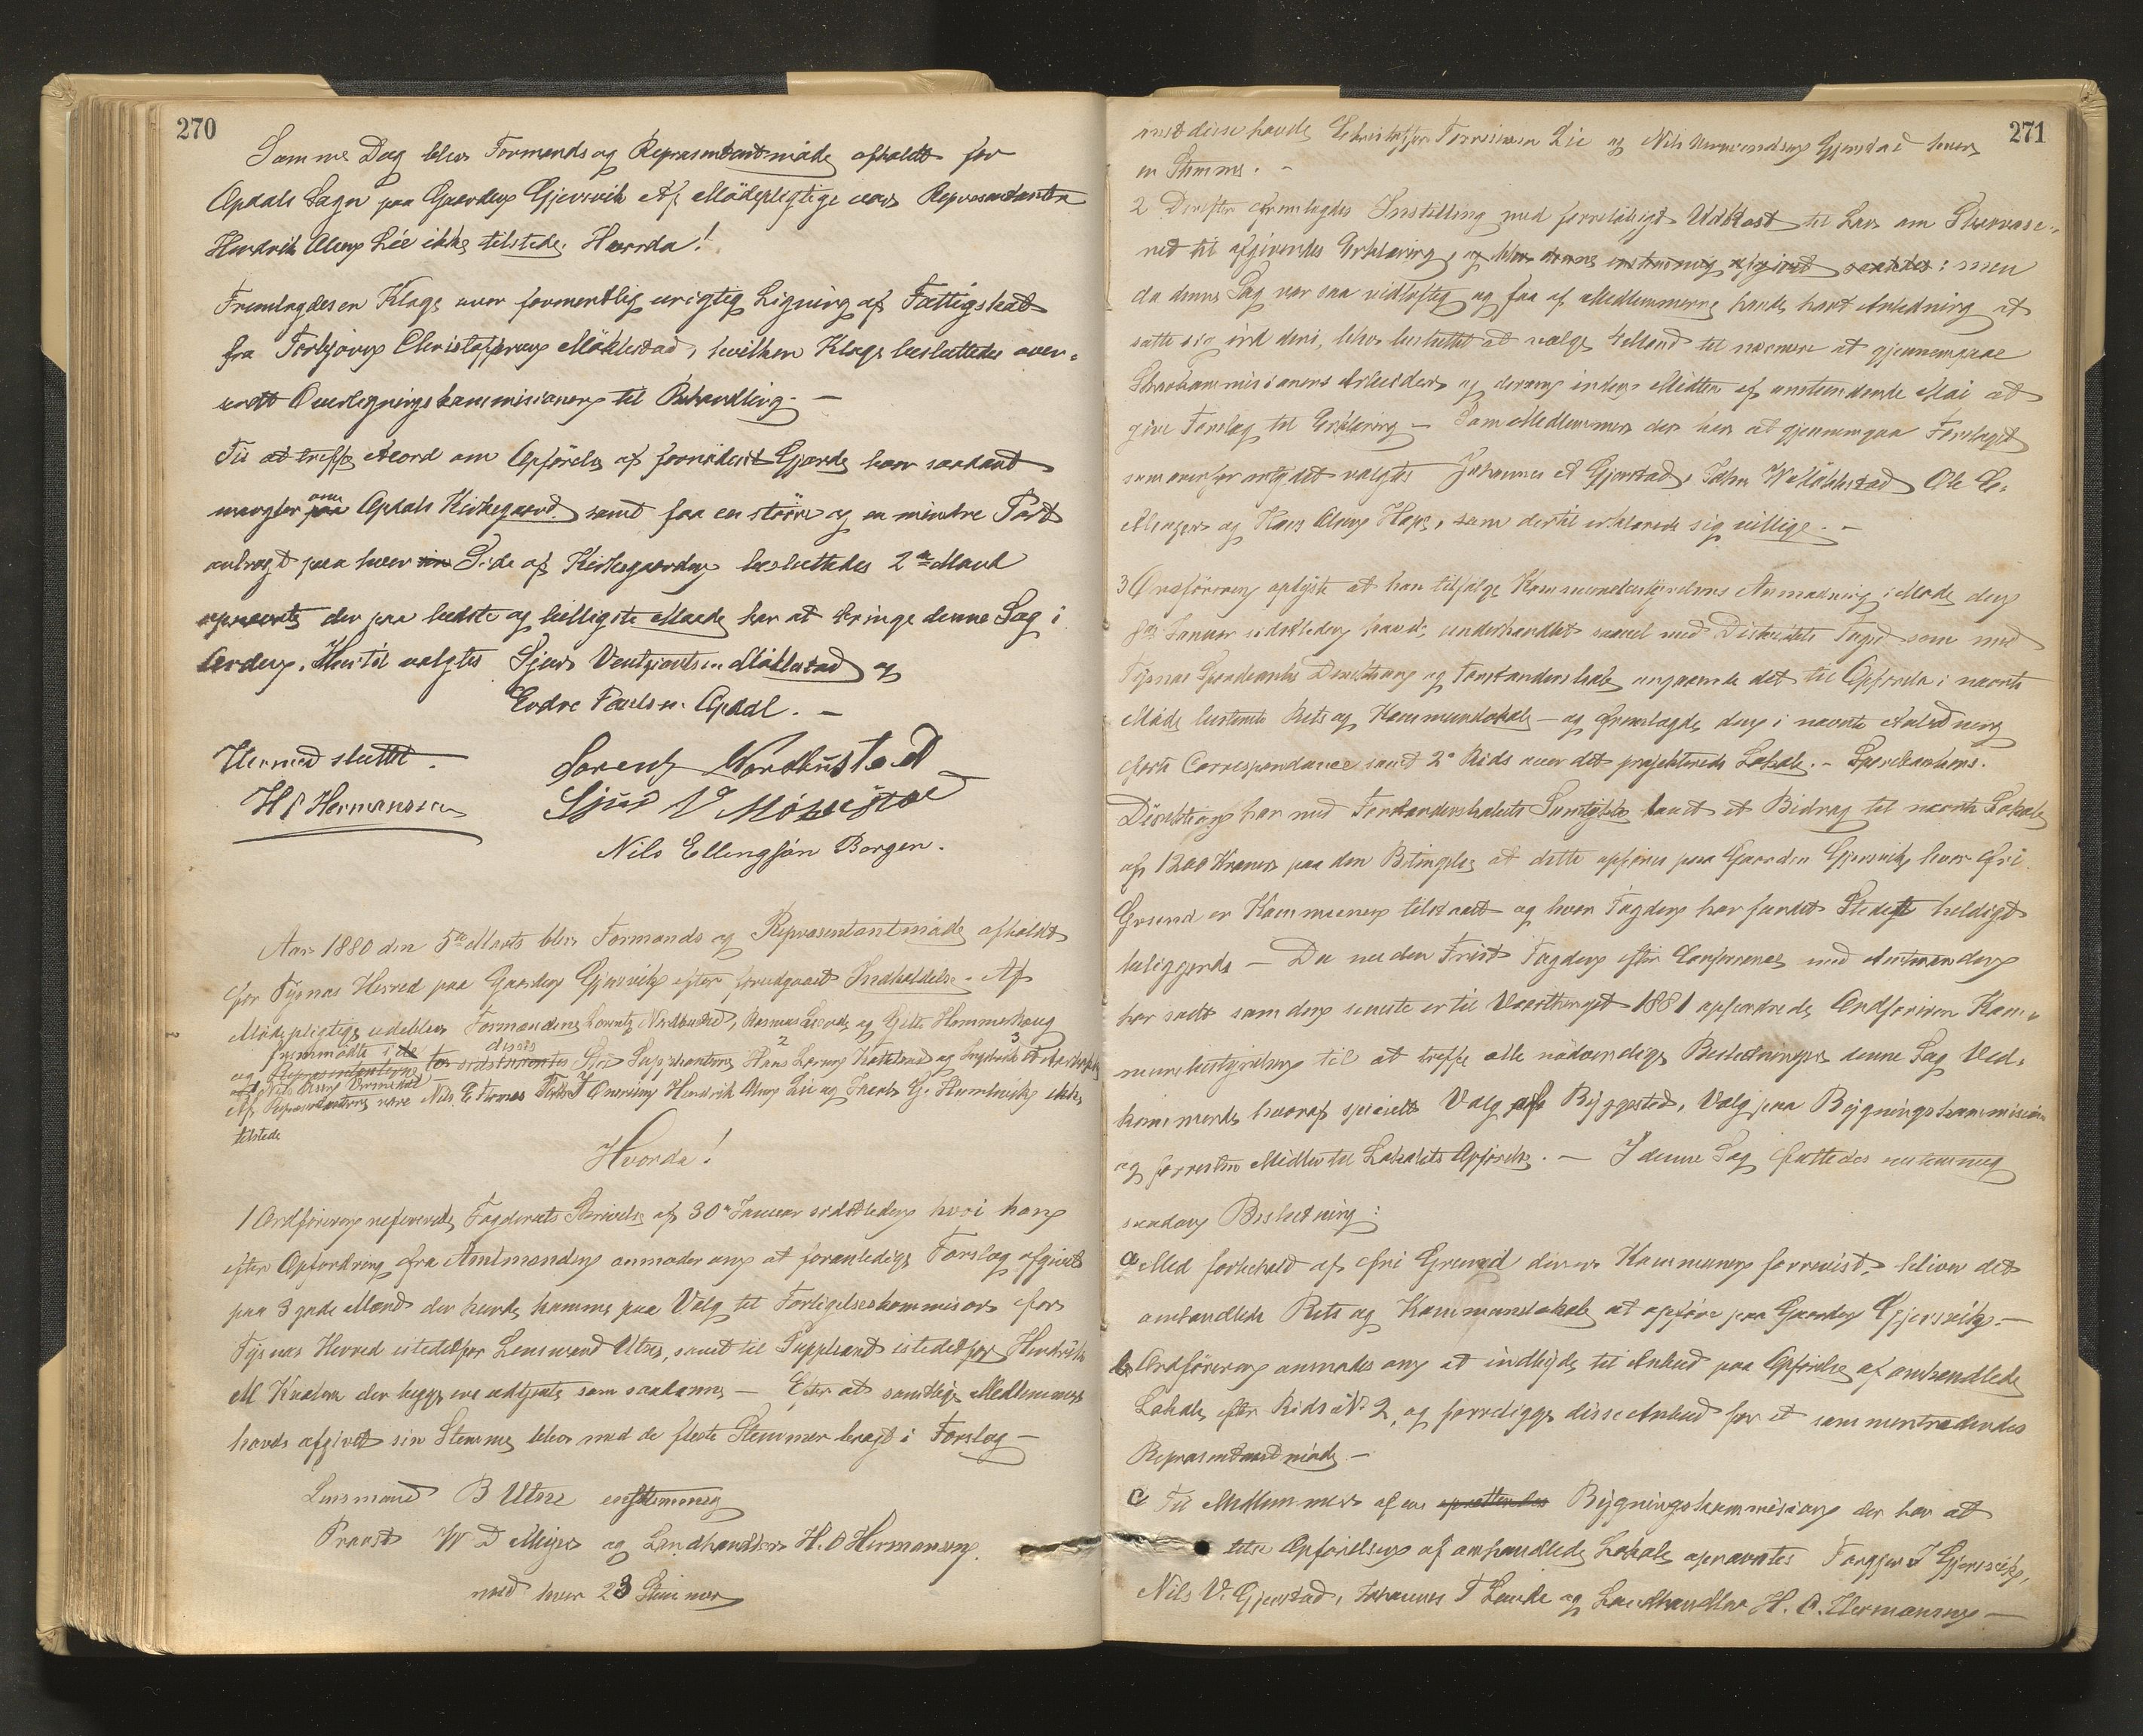 270
Samme Dag blev Formands og Repræsentantmøde afholdt for
Opdals Sogn paa Gaarden Gjersvik Af Mødepligtige var Repræsentanten
Hendrik Olsen Lie ikke tilstede. Hvorda!
Fremlagdes en Klage over formentlig urigtig Ligning af Fattigskat
fra Torbjørn Christoffersen Møklestad, hvilken Klage besluttedes over-
sendt Overligningskommissionen til Behandling. —
Til at træffe Accord om Opførelse af fornødent Gjærde hvor saadant
mangler om paa Opdals Kirkegaard samt faa en større og en mindre Port
anbragt paa hver sin Side af Kirkegaarden besluttedes 2de Mænd
opnævnte der paa bedste og billigste Maade har at bringe denne Sag i
Orden. Hertil valgtes Sjur Møklestad og
Endre Paulsen Opdal. —
Hermed sluttet. —
Lorentz Nordbustad
H O Hermansen
Sjur V Møklestad
Nils Ellingsøn Borgen.
Aar 1880 den 5te Marts blev Formands og Repræsentantmøde afholdt
for Tysnæs Herred paa Gaarden Gjersvik efter forudgaaet Indkaldelse. Af
Mødepligtige udeblev Formændene Lorentz Nordbustad, Rasmus og Gitle Hommerhaug
fremmødte i disses Sted Suppleanterne 2 Hans Larsen og 3
af Repræsentanterne vare Nils E Hendrik Olsen Lie og Jacob G. ikke
tilstede
Hvorda!
1 Ordføreren refererede Fogderiets Skrivelse af 30te Januar sidstleden hvori han
efter Opfordring fra Amtmanden anmoder om at foranledige Forslag afgivet
paa 3 gode Mænd der burde komme paa Valg til Forligelseskommissær for
Tysnæs Herred istedetfor Lensmand Utne, samt til Suppleant istedetfor Hendrik
M der begge ere udtjente som saadanne — Efter at samtlige Medlemmer
havde afgivet sin Stemme blev med de fleste Stemmer bragt i Forslag —
Lensmand B Utne enstemmig
Provst W D Meyer og Landhandler H. O Hermansen
med hver 23 Stemmer
271
mest disse havde Christoffer Lie og Nils Gjerstad hver
en Stemme. —
2 Derefter fremlagdes Instilling med foreløbigt Udkast til Lov om Skovvæse-
net til afgivendes Erklæring, og blev denne afgivet saaledes: men
da denne Sag var saa vidløftig og faa af Medlemmerne havde havt Anledning at
sætte sig ind deri, blev besluttet at vælge 4 Mænd til nærmere at gjennemgaae
Skovkommissionens Arbeider og derom inden Midten af anstundende Mai at
give Forslag til Erklæring — Som Medlemmer der har at gjennemgaa Forslaget
som ovenfor antydet valgtes Johannes A Gjerstad, John Møklestad Ole
og Hans Olsen Hope, som dertil erklærede sig villige. —
3 Ordføreren oplyste at han tilfølge Kommunebestyrelsens Anmodning i Møde den
Januar sidstleden havde underhandlet saavel med Distriktets Foged som med
Tysnæs Sparebanks Direktion og Forstanderskab angaaende det til Opførelse i nævnte
Møde bestemte Rets og Kommunelokale — og fremlagde den i nævnte Anledning
førte Correspondance samt 2de Rids over det projekterede Lokale. — Sparebankens
Direktion har med Forstanderskabets Samtykke lovet et Bidrag til nævnte Lokale
af 1200 Kroner paa den Betingelse at dette opføres paa Gaarden Gjersvik, hvor fri
Grund er Kommunen tilstaaet og hvor Fogden har fundet Stedet heldigt
beliggende — Da nu den Frist Fogden efter Conference med Amtmanden
har sat som den seneste er til Vaarthinget 1881 opfordrede Ordføreren Kom-
munebestyrelsen til at træffe alle nødvendige Beslutninger denne Sag Ved-
kommende hvoraf specielt Valg af Byggested, Valg paa Bygningskommission
og forresten Midler til Lokalets Opførelse. — I denne Sag fattedes enstemmig
saadan Beslutning:
a Med forbehold af fri Grund bliver det
omhandlede Rets og Kommunelokale at opføre paa Gaarden Gjersvik. —
b Ordføreren anmodes om at indbyde til Anbud paa Opførelse af omhandlede
Lokale efter Rids No 2, og forelægge disse Anbud for et sammentrædendes
Repræsentantmøde. —
c Til Medlemmer af en Bygningskommission der har at
lede Opførelsen af omhandlede Lokale opnævntes J Gjersvik,
Nils V. Gjerstad, Johannes T Lande og Landhandler H. O. Hermansen —